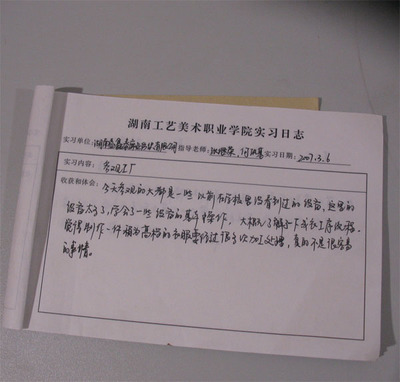 湖南工艺美术职业学院实习日志
实习单位: 湖南 有限公司 指导老师: 实习日期: 2007.3.6
实习内容: 参观工厂
收获和体会: 今天参观的大都是一些以前在学校里没看到过的设备, 这里的
设备太多了, 学会了一些设备的基本操作, 大概了解了一下 工序流程.
觉得制作一件 高档的 服 过很多次加工处理, 真的不是很容易
的事情。